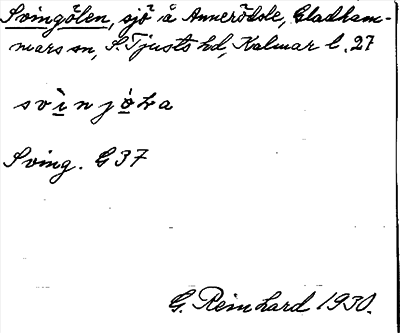 Svingölen, sjö å Annerödsle, Gladham-
mars sn, S. Tjusts hd, Kalmar l. 27
svìnjò̱La
Sving. G 37
G. Reinhard 1930.